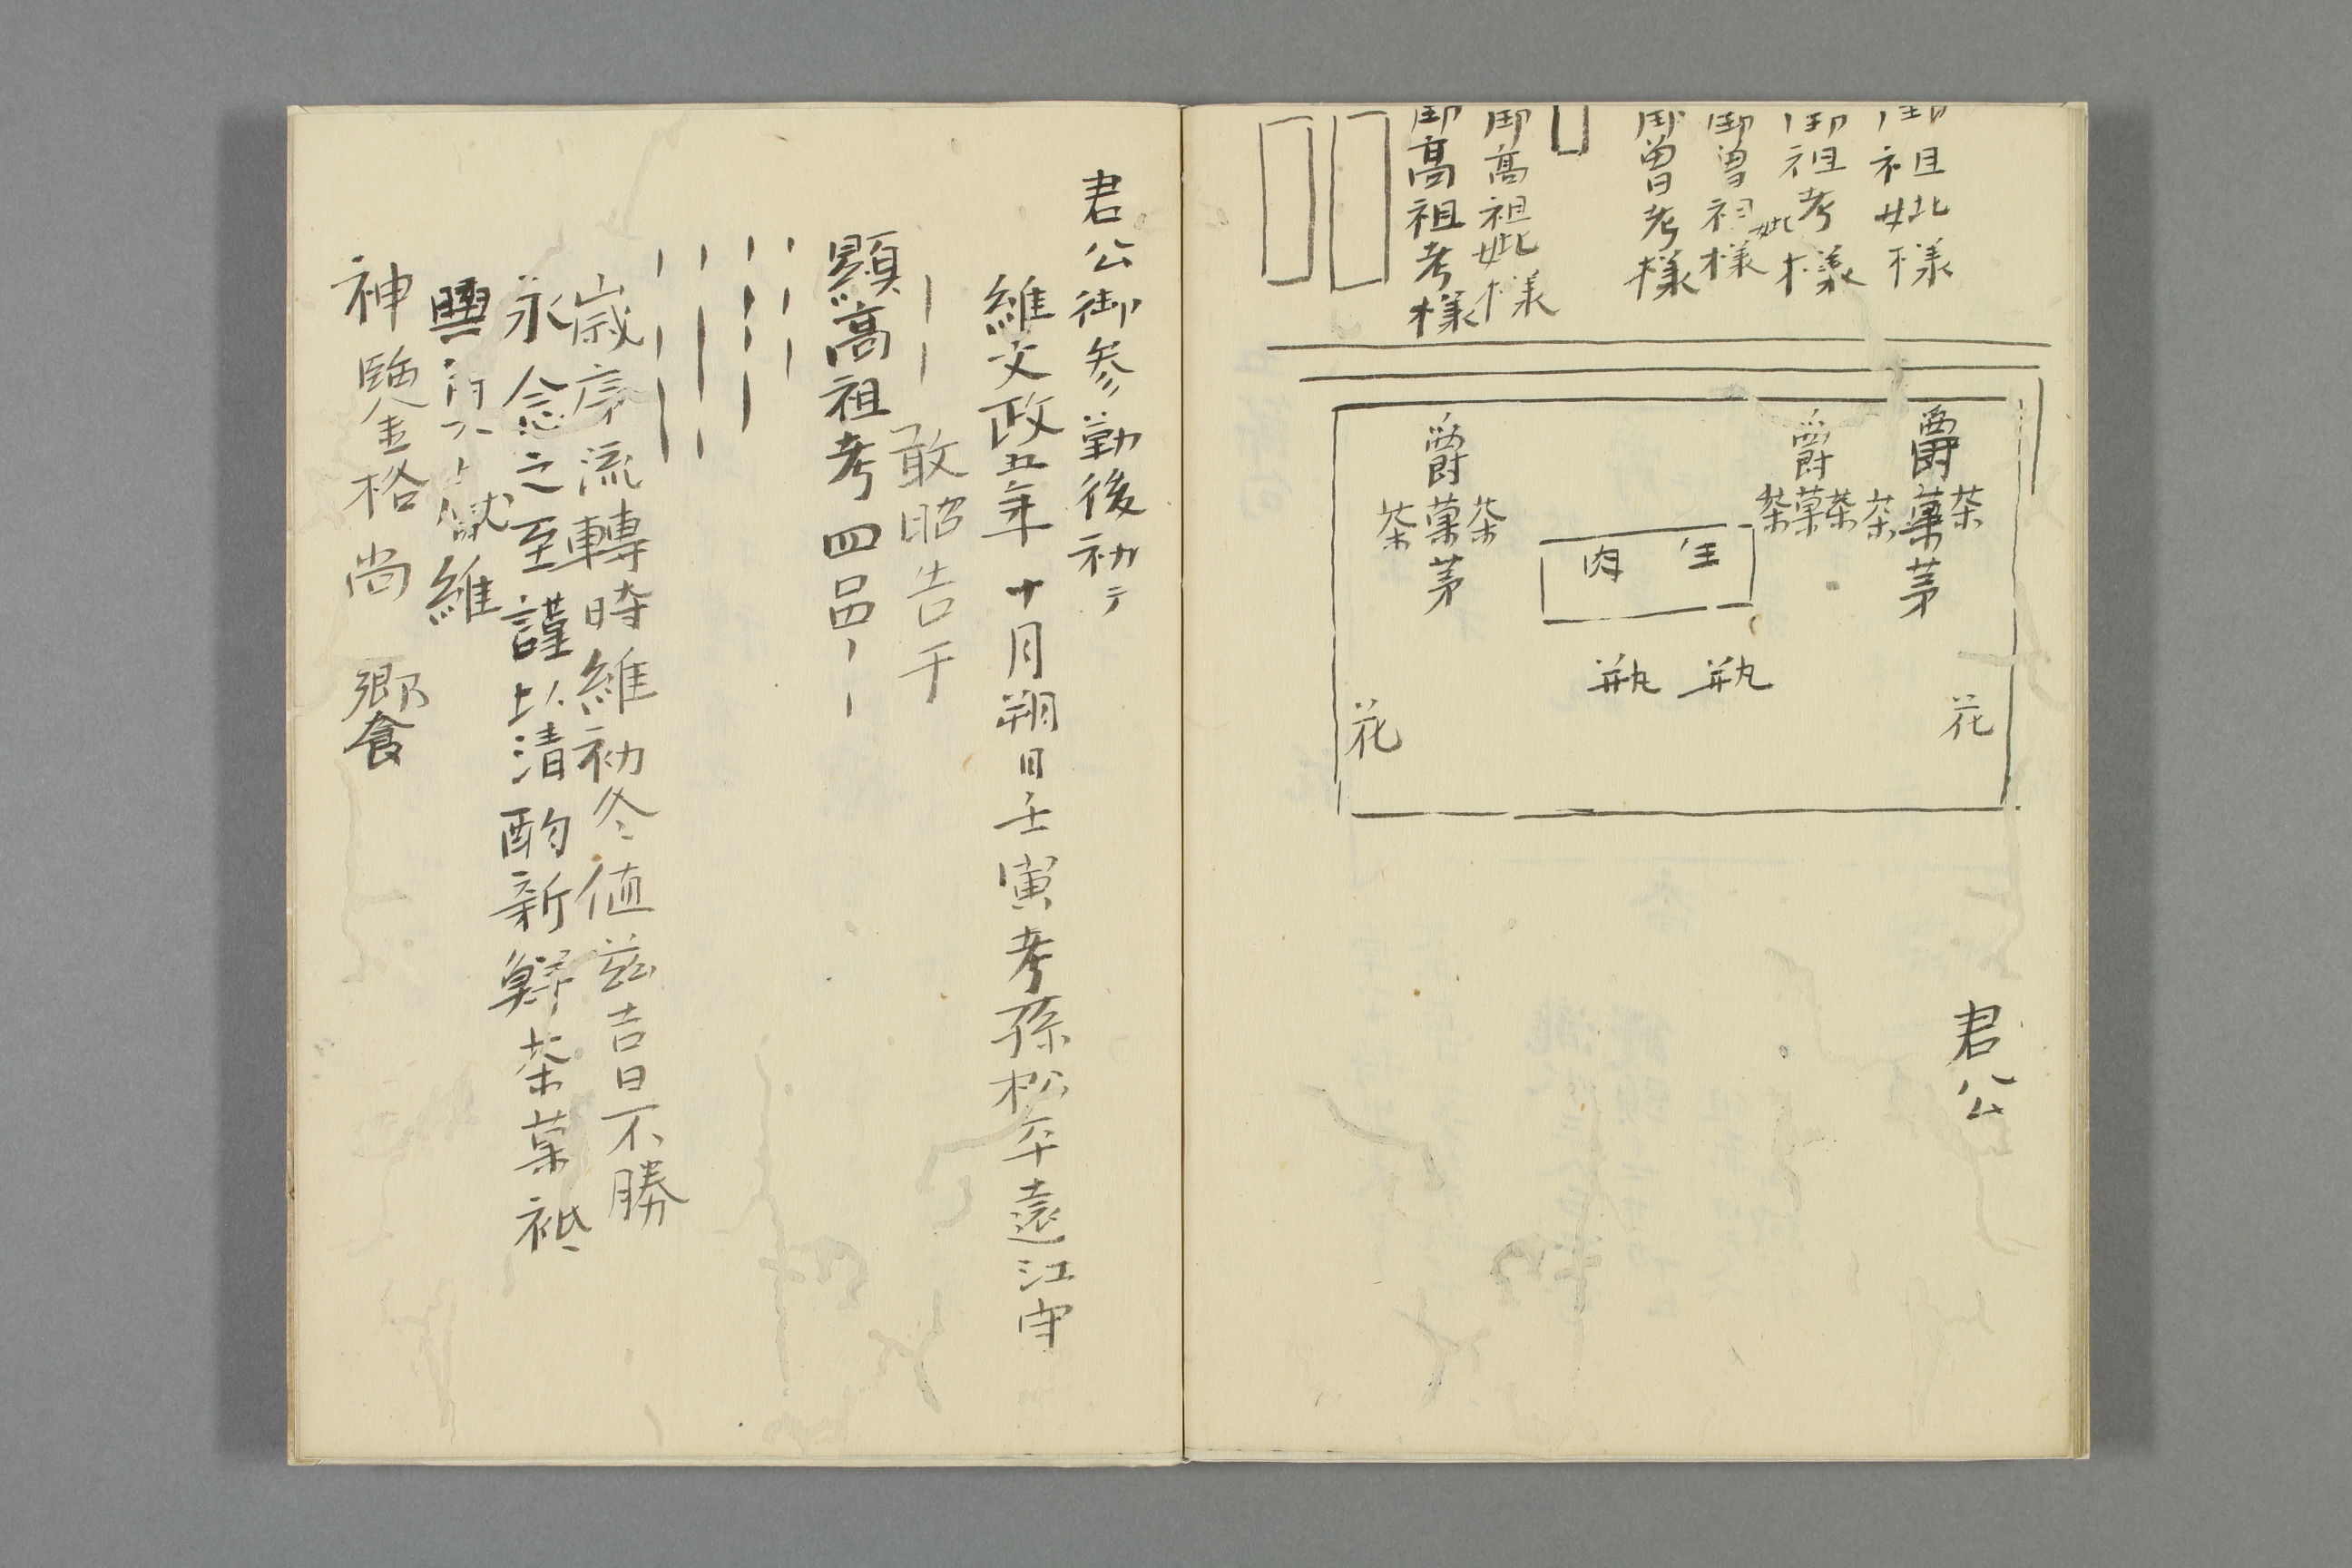 御祖妣様
御祖考様
御曽祖妣様
御曽考様
御高祖妣様
御高祖考様
爵 爵 爵
茶菓茶 茶菓茶 茶菓茶
茅 茅
生肉
瓶 瓶
花 花
君公
君公御参勤後初テ
維文政五年十月朔日壬寅孝孫松平遠江守
敢昭告于
顕高祖考四品
歳序流轉時維初冬値茲吉日不勝
永念之至謹以清酌新鮮茶菓祗
維
神鑒金格尚 饗